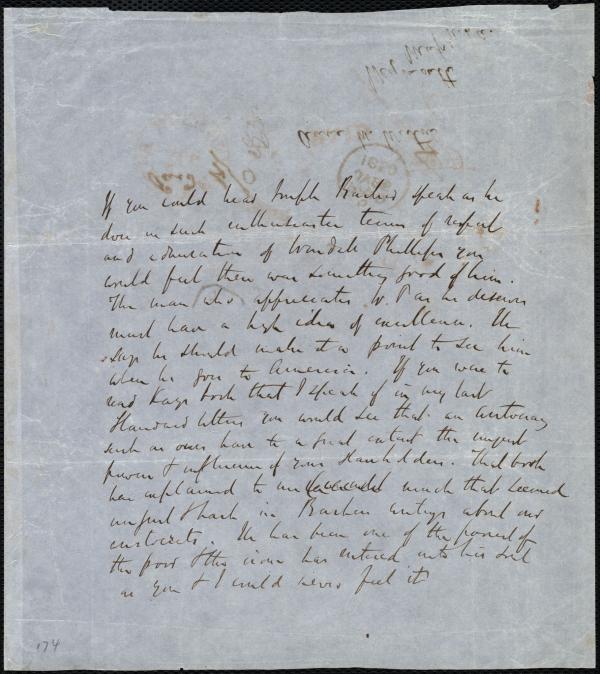 Weymouth
Anne W. Weston
Paid
If you could hear Joseph Barker speak as he
does in such enthusiastic terms of respect
and admiration of Wendell Phillips you
would feel there was something good of him.
The man who appreciates W. P as he deserves
must have a high idea of excellence. He
says he should make it a point to see him
when he goes to America. If you were to
read Kays book that I speak of in my last
Standard letters you would see that an aristocracy
such as ours have to a great extent the unjust
power & influence of your Slaveholders. That book
has explained to me much that seemed
unjust & harsh in Barkers writings about our
aristocrats. He has been one of the poorest of
the poor & the iron has entered into his soul
as you & I could never feel it
174